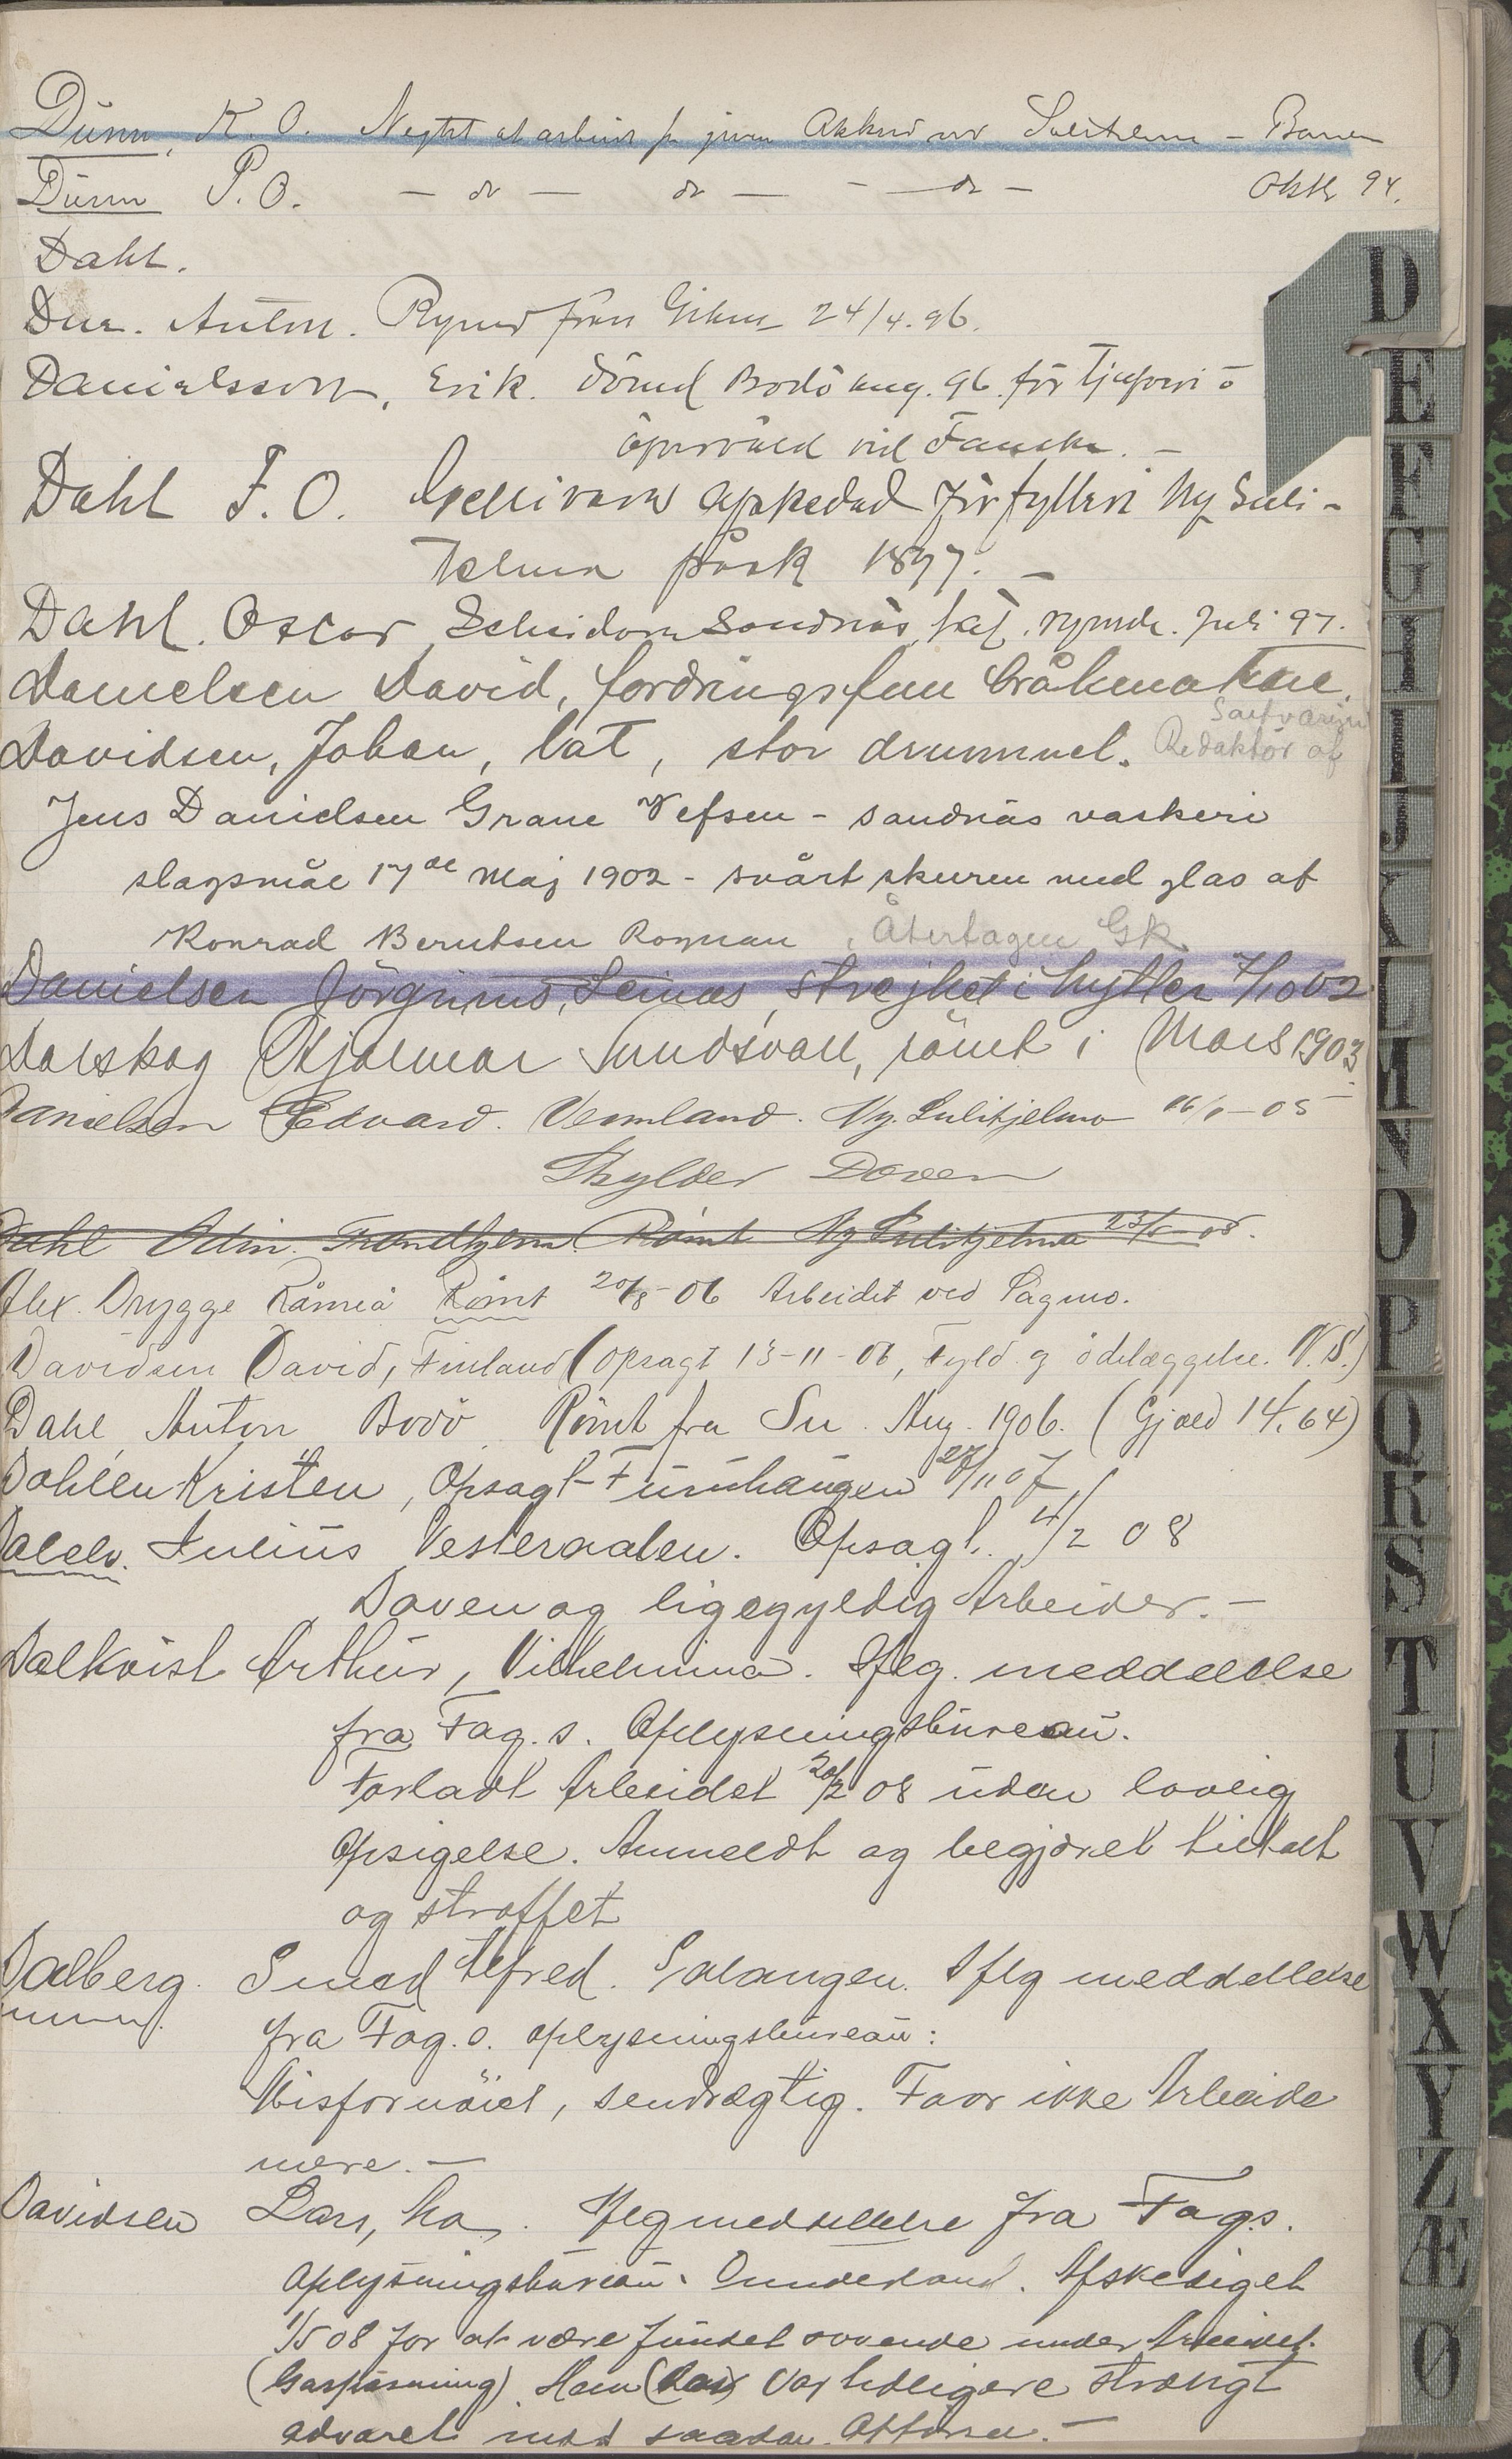 Dünn, K. O. Negtet at arbeide for given Akkord ved Sulitelma - Banen
Dünn P. O. - do - do - - do - Oktbr 94.
Dahl.
Dur. Anton. Rymd från Giken 24/4. 96.
Danielsson, Erik. dömd Bodö aug. 96. för Tjufveri o
åverväld vid Fauske. -
Dahl F. O. Gellivara afskedad för fylleri Ny Suli-
telma påsk 1897. -
Dahl. Oscar Sandnäs, rymde. Juli 97.
Danielsen David, fordringsfull bråkmakare.
Davidsen, Johan, lat, stor drummel. Redaktör af
Salfvarjn
Jens Danielsen Grane Vefsen - sandnäs vaskeri
slagsmål 17de maj 1902 - svårt skuren med glas af
Konrad Berntsen Rognan, Återtagen GK
Danielsen Jörginus, Leines, strejket i hytten 7/10 02
Dalskog Hjalmar Sundsvall, römt i Mars 1903.
Danielsen Edvard. Vermland. Ny. Sulitjelma 16/1-05
Skylder Doven
Dahl Odin. Trondhjem. Rømt Ny Sulitjelma 23/5-05.
Alex. Drygge Råneå Rømt 20/8-06 Arbeidet ved Fagmo.
Davidsen David, Finland (opsagt 13-11-06, Fyld og ödelæggelse. N.S.)
Dahl Anton Bodö Römt fra Su. Aug. 1906. (Gjæld 14,64)
Dahlén Kristen, Opsagt Furuhaugen 27/11 07
Dalelv. Julius Vesteraalen. Opsagt. 4/2 08
Doven og ligegyldig Arbeider. -
Dalkvist Arthur, Vilhelmina. Iflg. meddelelse
fra Fag. s. Oplysningsbureau.
Forladt Arbeidet 20/2 08 uden lovlig
Opsigelse. Anmeldt og begjæret tiltalt
og straffet
Dalberg. Smed Alfred. Salangen. Iflg meddellelse
fra Fag. s. oplysningsbureau:
Misfornöiet, sendrægtig. Faar ikke Arbeide
mere. -
Davidsen Lars, Mo. Iflg meddellelse fra Fag.s.
Oplysningsbureau. Dunderland. Afskediget
1/5 08 for at være fundet sovende under Arbeidet.
(Gaspasning). Han (Lars) var tidligere strængt
advaret mod saadan Opførsel. -
D
E
F
G
H
I
J
K
L
M
N
O
P
Q
R
S
T
U
V
W
X
Y
Z
Æ
Ø